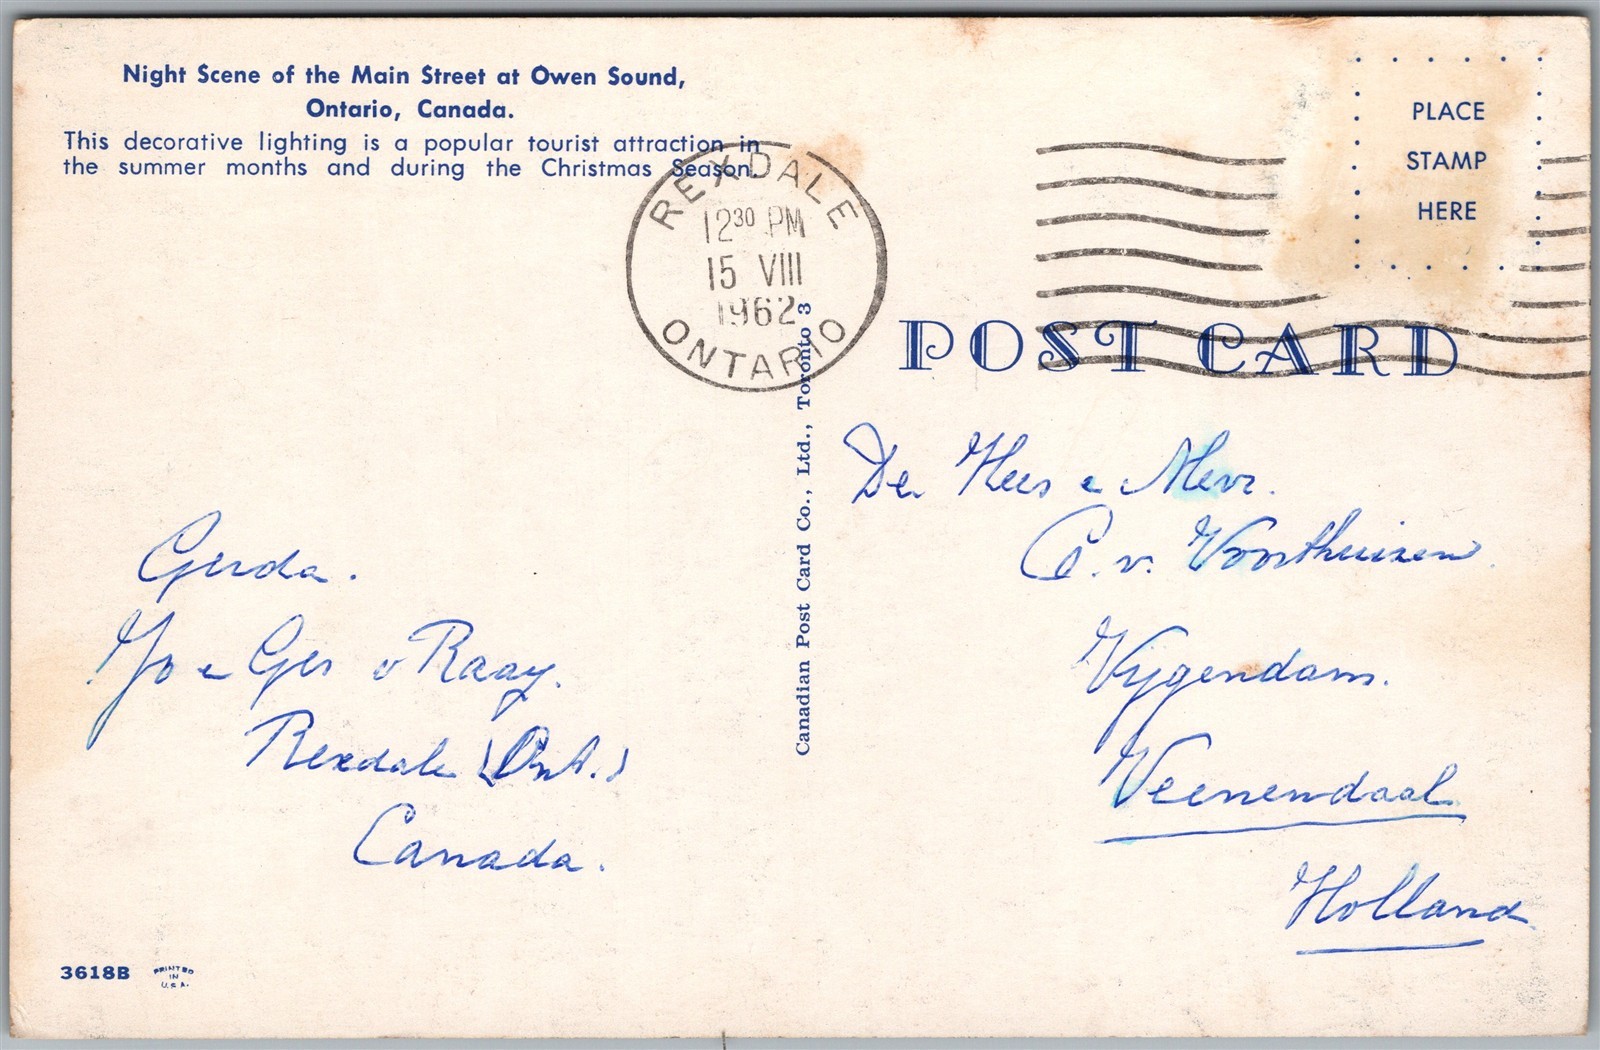 Night Scene of the Main Street at Owen Sound,
Ontario, Canada.
This decorative lighting is a popular tourist attraction in
the summer months and during the Christmas Season.
REXDALE
12 30 PM
15 VIII
1962
ONTARIO
PLACE
STAMP
HERE
POST CARD
Canadian Post Card Co., Ltd., Toronto 3
De Hees e Mevr.
C. v. Voorthuizen
Vijgendam.
Veenendaal
Holland
Gerda.
Jo e Ger v Raay.
Rexdale (Ont.)
Canada.
3618B
PRINTED
IN
U.S.A.